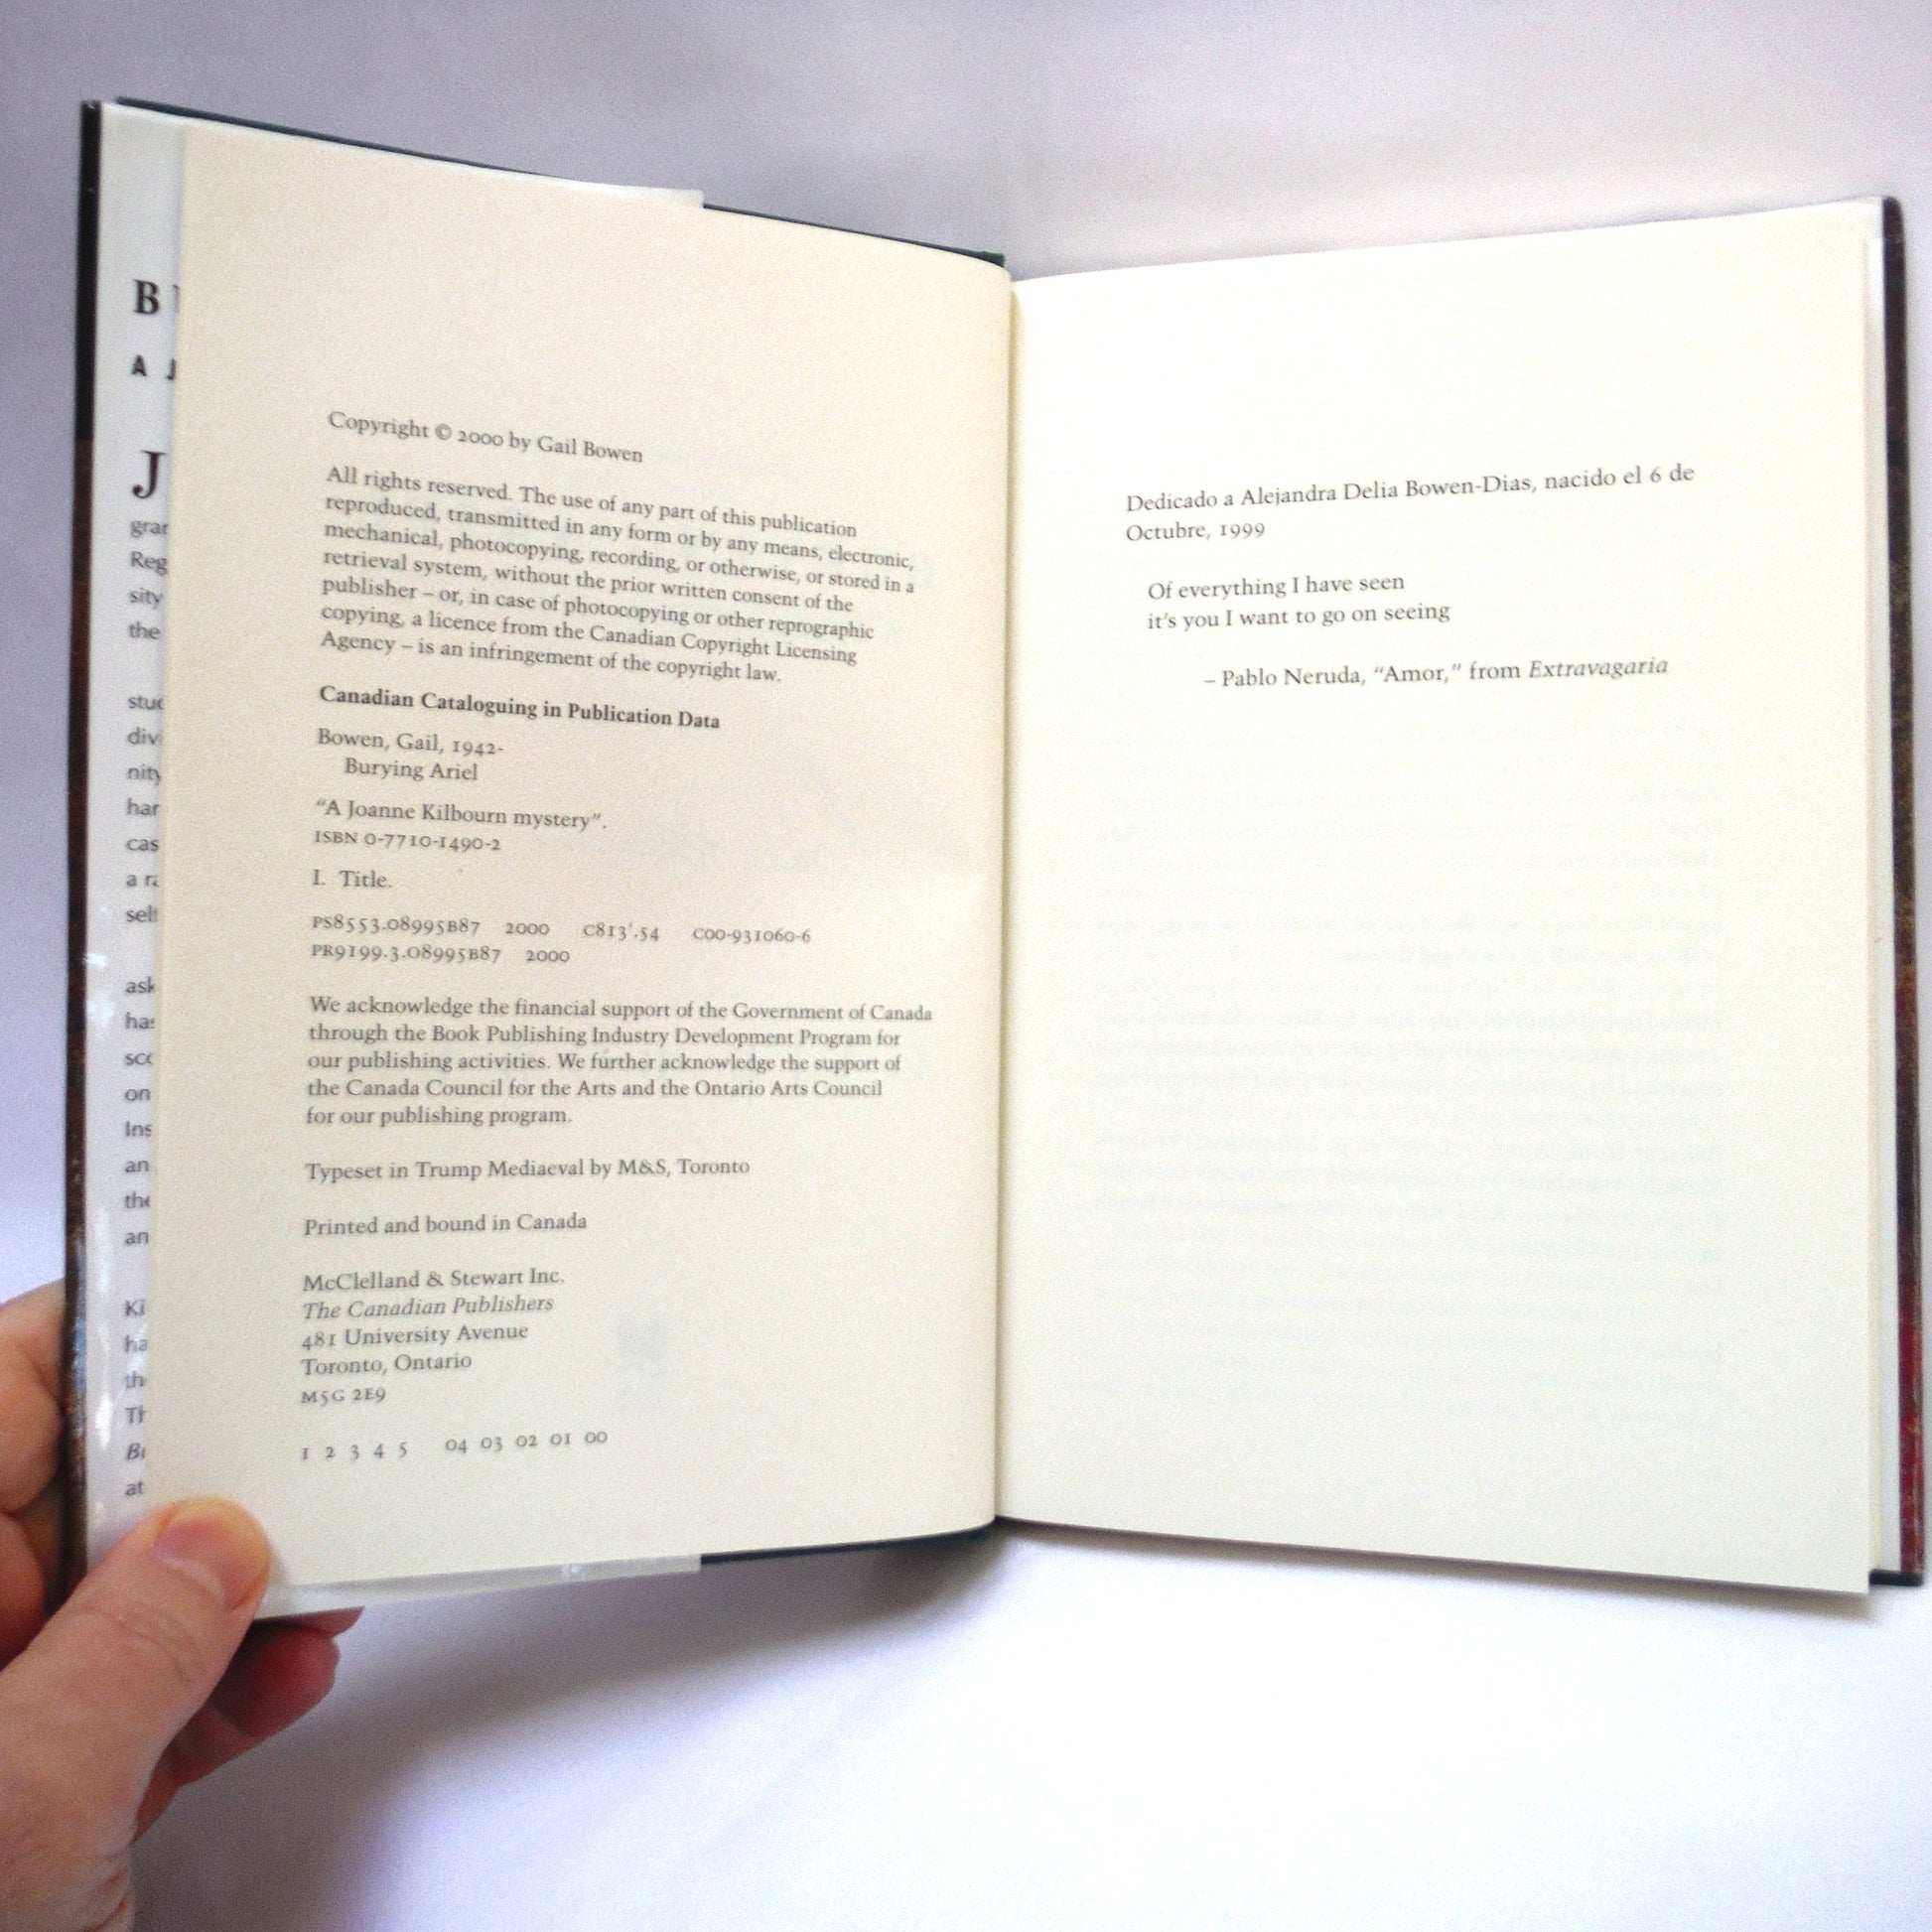 B
A J
J
gran
Reg
sity
the
stud
div
nity
har
cas
a ra
self
ask
has
sco
on
Ins
an
the
an
Ki
ha
th
Th
at
Copyright © 2000 by Gail Bowen
All rights reserved. The use of any part of this publication
reproduced, transmitted in any form or by any means, electronic,
mechanical, photocopying, recording, or otherwise, or stored in a
retrieval system, without the prior written consent of the
publisher – or, in case of photocopying or other reprographic
copying, a licence from the Canadian Copyright Licensing
Agency – is an infringement of the copyright law.
Canadian Cataloguing in Publication Data
Bowen, Gail, 1942-
Burying Ariel
“A Joanne Kilbourn mystery”.
ISBN 0-7710-1490-2
I. Title.
PS8553.O8995B87 2000 C813'.54 C00-931060-6
PR9199.3.O8995B87 2000
We acknowledge the financial support of the Government of Canada
through the Book Publishing Industry Development Program for
our publishing activities. We further acknowledge the support of
the Canada Council for the Arts and the Ontario Arts Council
for our publishing program.
Typeset in Trump Mediaeval by M&S, Toronto
Printed and bound in Canada
McClelland & Stewart Inc.
The Canadian Publishers
481 University Avenue
Toronto, Ontario
M5G 2E9
1 2 3 4 5 04 03 02 01 00
Dedicado a Alejandra Delia Bowen-Dias, nacido el 6 de
Octubre, 1999
Of everything I have seen
it’s you I want to go on seeing
– Pablo Neruda, “Amor,” from Extravagaria